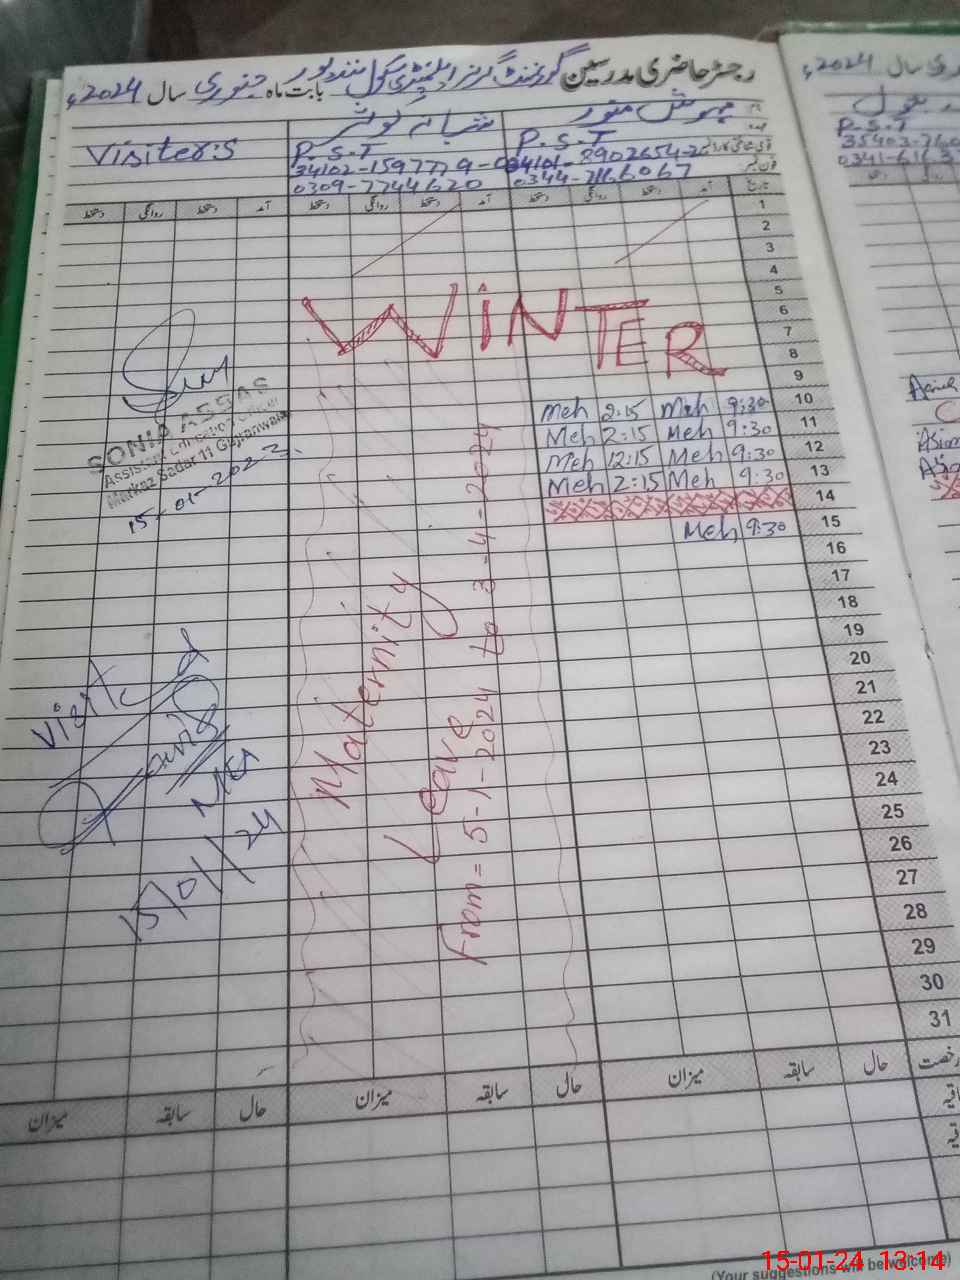 رجسٹر حاضری مدرسین گورنمنٹ گرلز ایلیمنٹری سکول نندپور بابت ماہ جنوری سال 2024ء
مہوش منور
کوثر
Visiter:S
P.S.T
P.S.T
34102-1597729-0
34101-8902654-2
0309-7744620
0344-7166067
تاریخ
آمد دستخط روانگی دستخط آمد دستخط روانگی دستخط آمد دستخط روانگی دستخط
1
2
3
4
5
6
7
8
9
WINTER
10 9:30 Meh 2:15 Meh
11 9:30 Meh 2:15 Meh
12 9:30 Meh 12:15 Meh
13 9:30 Meh 2:15 Meh
14
15 9:30 Meh
16
17
18
19
20
21
22
23
24
25
26
27
28
29
30
31
Maternity
Leave
From = 5-1-2024 to 3-4-2024
SONIA ABBAS
Assistant Education Officer
Markaz Sadar 11 Gujranwala
15-01-2023
Visited
MEA
15/01/24
رخصت حال سابقہ میزان حال سابقہ میزان حال سابقہ میزان
سال 2024ء
P.S.T
35403-760
0341-6163
(Your suggestions will be welcome)
15-01-24 13:14